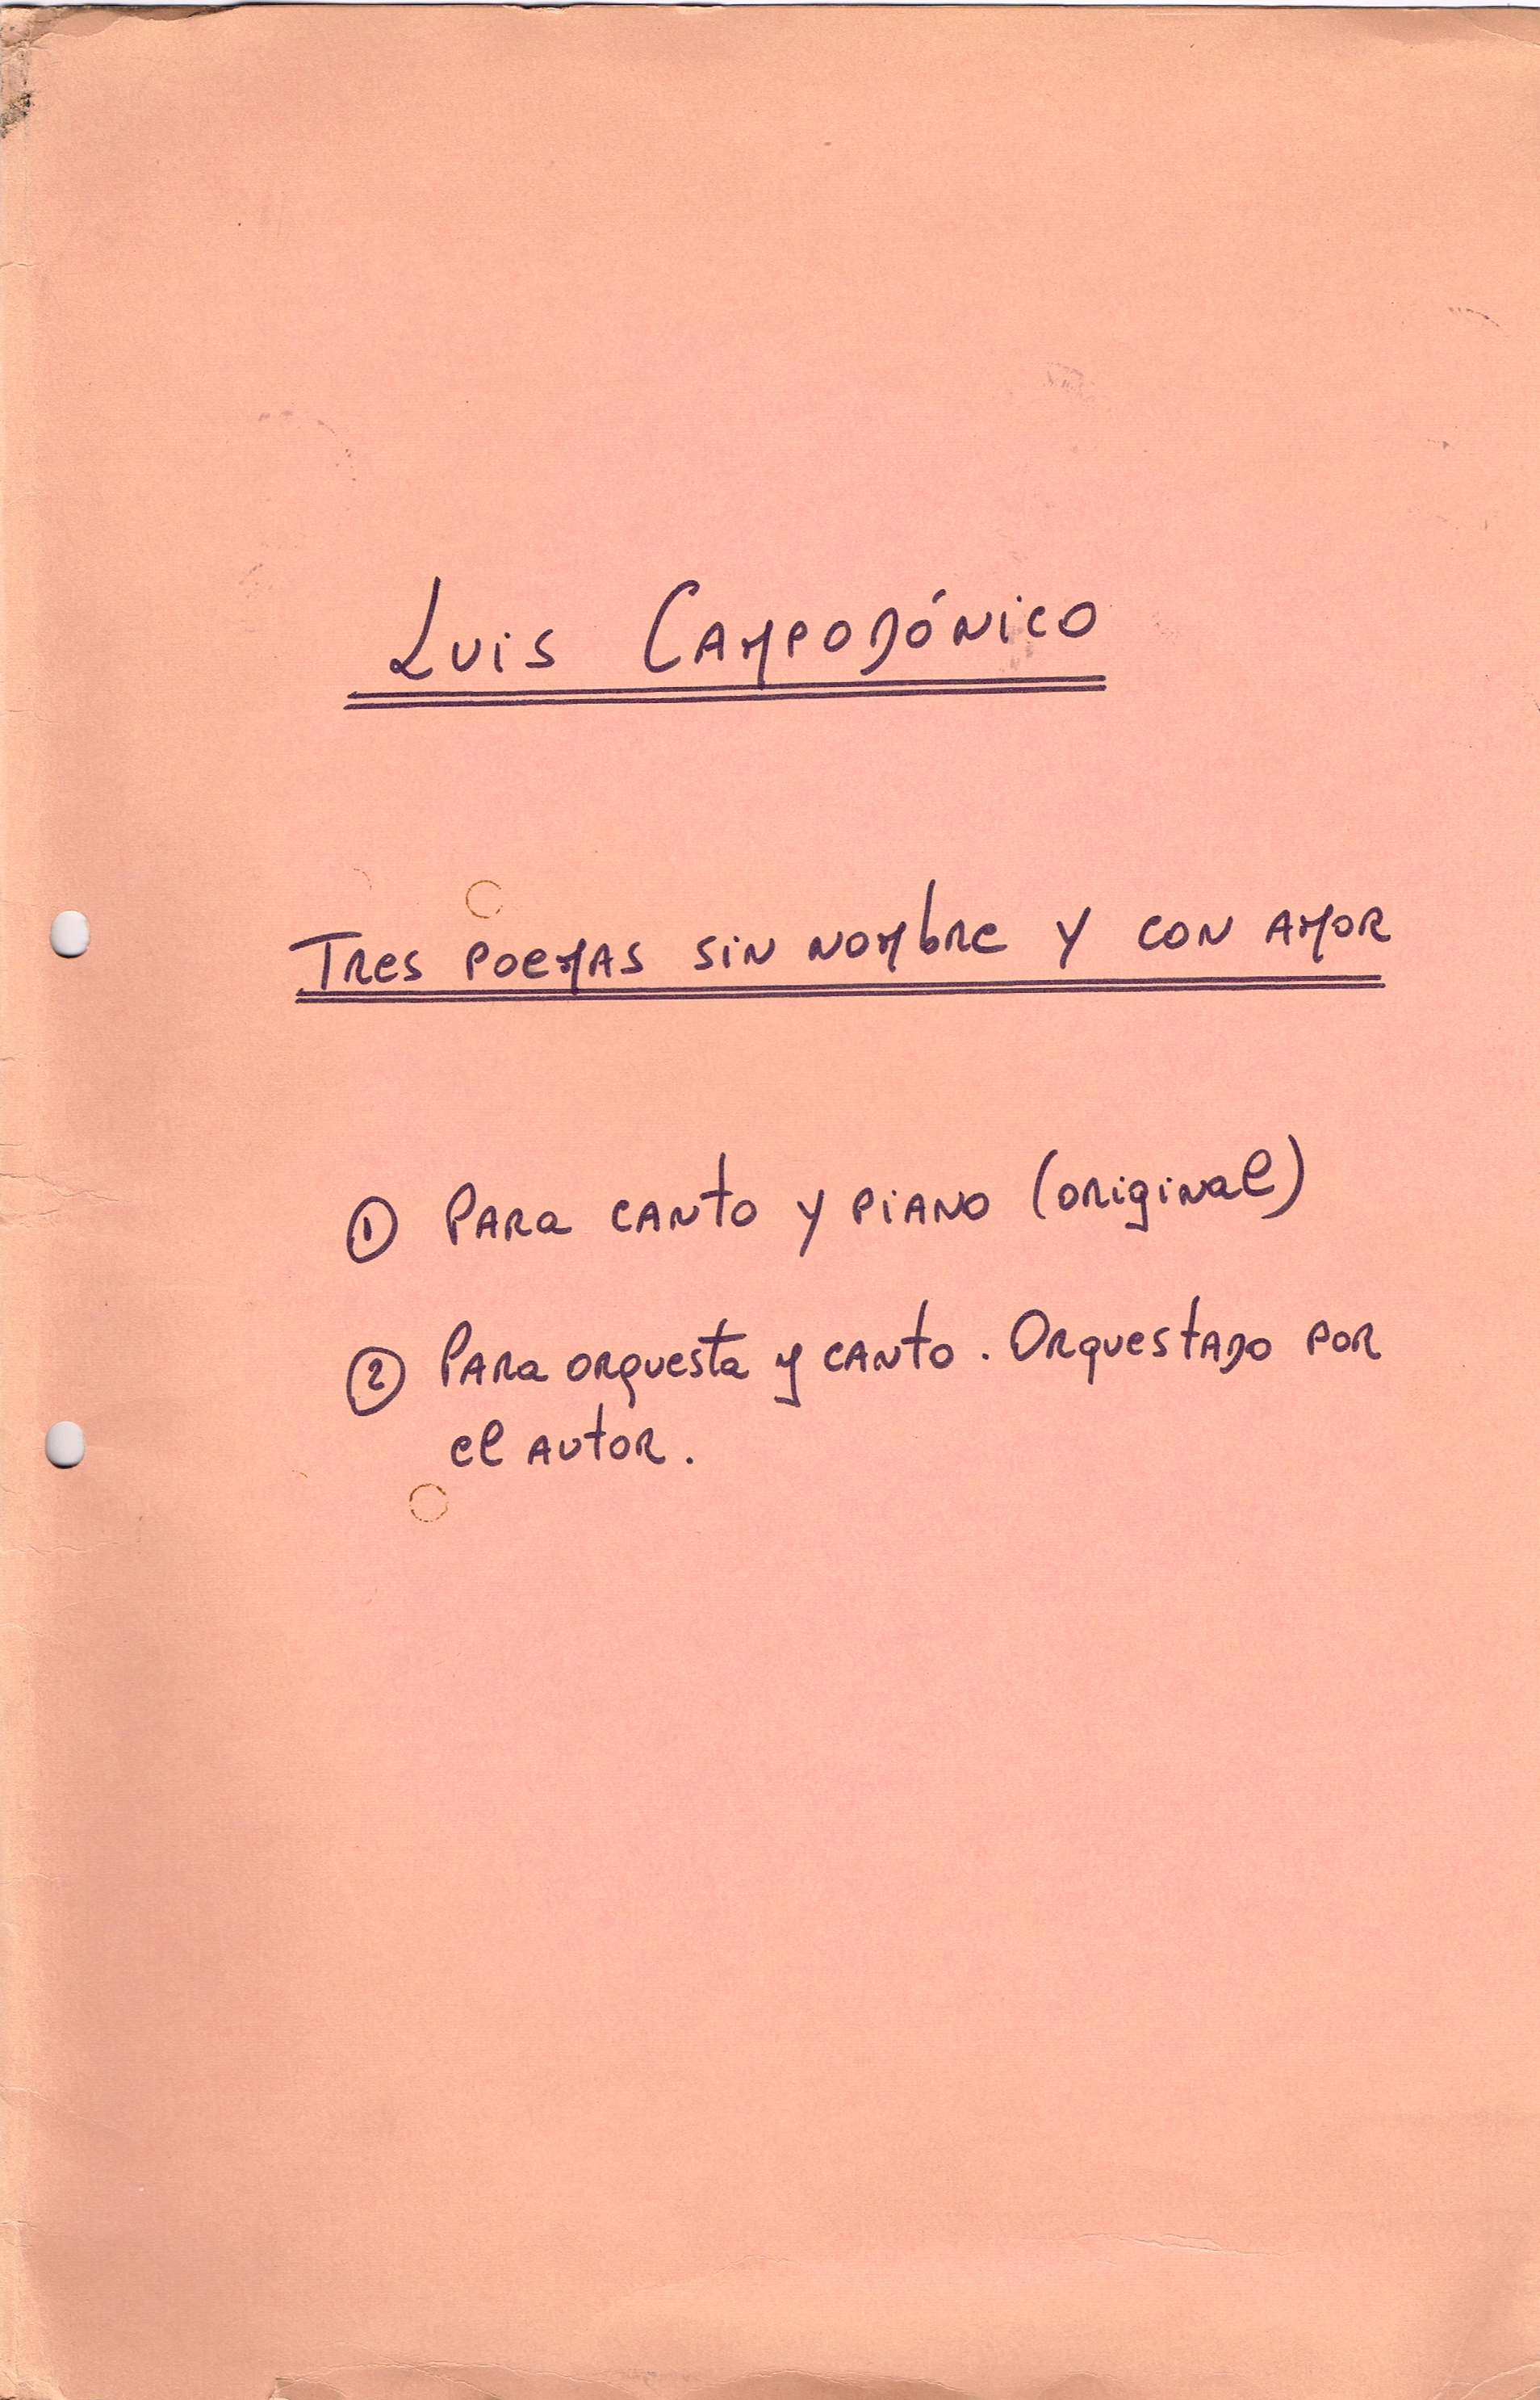 Luis Campodónico
Tres poemas sin nombre y con amor
① Para canto y piano (original)
② Para orquesta y canto. Orquestado por
el autor.